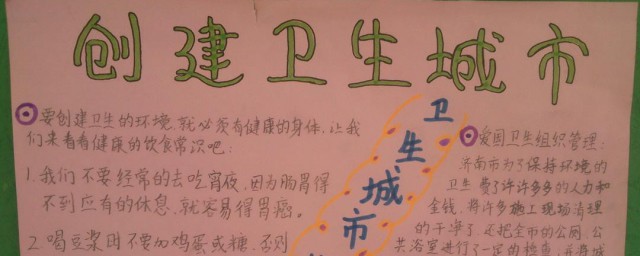 创建卫生城市
要创建卫生的环境,就必须有健康的身体,让我
们来看看健康的饮食常识吧:
1.我们不要经常的去吃宵夜,因为肠胃得
不到应有的休息,就容易得胃癌。
2.喝豆浆时不要加鸡蛋或糖,否则
卫生城市
爱国卫生组织管理:
济南市为了保持环境的
卫生,费了许许多多的人力和
金钱,将许多施工现场清理
的干净了,还把全市的公厕,公
共浴室进行了一定的检查,并将城